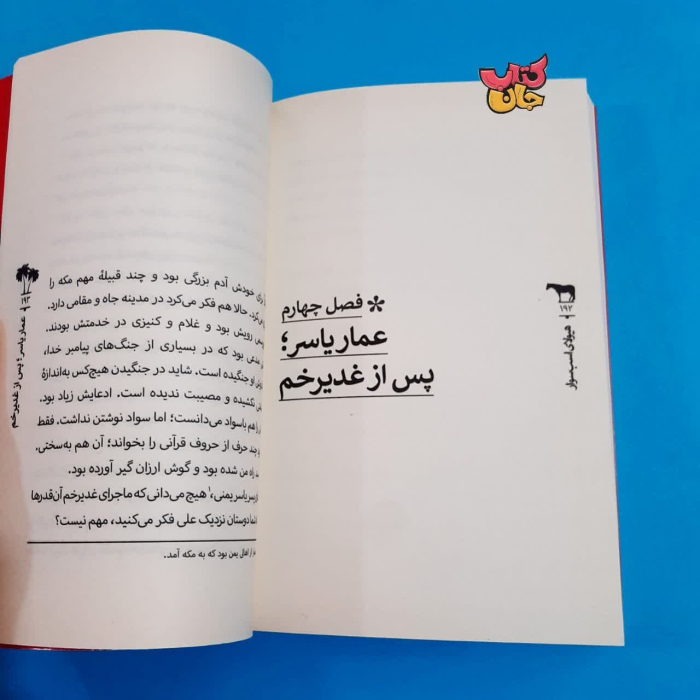 کتاب
جان
* فصل چهارم
عمار یاسر؛
پس از غدیرخم
۱۹۲
هیولای اسب‌سوار
خودش آدم بزرگی بود و چند قبیلهٔ مهم مکه را
حالا هم فکر می‌کرد در مدینه جاه و مقامی دارد.
رویش بود و غلام و کنیزی در خدمتش بودند.
بود که در بسیاری از جنگ‌های پیامبر خدا،
او جنگیده است. شاید در جنگیدن هیچ‌کس به‌اندازهٔ
نکشیده و مصیبت ندیده است. ادعایش زیاد بود.
هم باسواد می‌دانست؛ اما سواد نوشتن نداشت. فقط
چند حرف از حروف قرآنی را بخواند؛ آن هم به‌سختی.
راه من شده بود و گوش ارزان گیر آورده بود.
یاسر یمنی،۱ هیچ می‌دانی که ماجرای غدیرخم آن‌قدرها
شما دوستان نزدیک علی فکر می‌کنید، مهم نیست؟
از اهالی یمن بود که به مکه آمد.
عمار یاسر؛ پس از غدیرخم